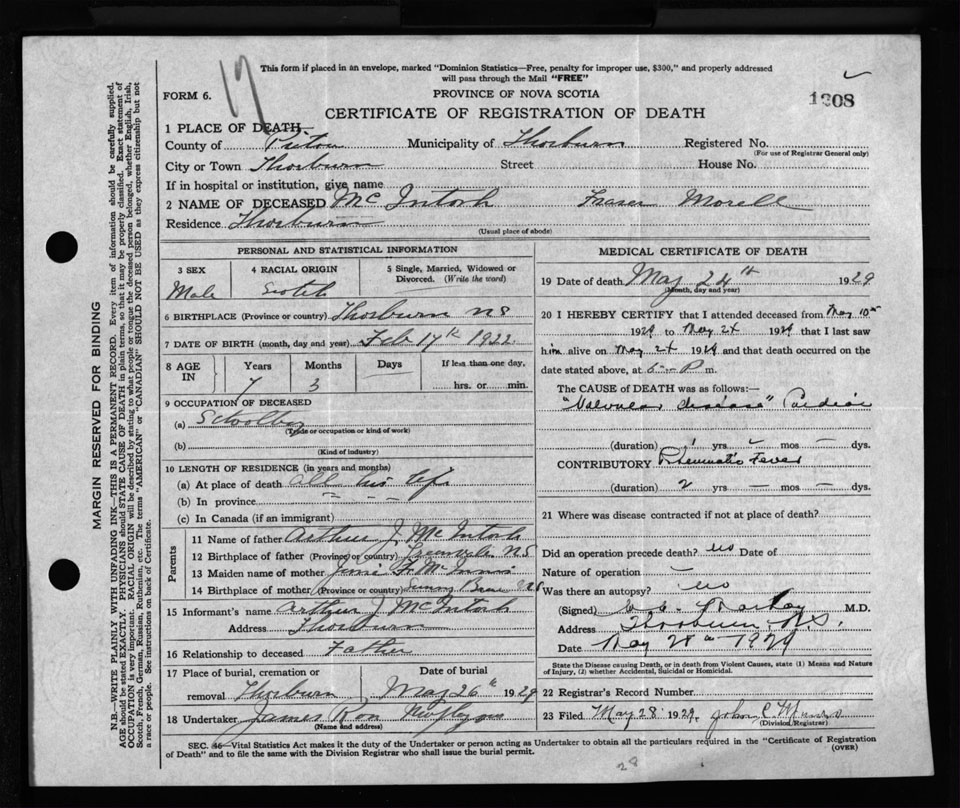 17
This form if placed in an envelope, marked "Dominion Statistics—Free, penalty for improper use, $300," and properly addressed
will pass through the Mail "FREE"
FORM 6.
PROVINCE OF NOVA SCOTIA
1308
CERTIFICATE OF REGISTRATION OF DEATH
1 PLACE OF DEATH
County of Pictou Municipality of Thorburn Registered No.
(For use of Registrar General only)
City or Town Thorburn Street House No.
If in hospital or institution, give name
2 NAME OF DECEASED McIntosh Fraser Morell
Residence Thorburn
(Usual place of abode)
MARGIN RESERVED FOR BINDING
N.B.—WRITE PLAINLY WITH UNFADING INK—THIS IS A PERMANENT RECORD. Every item of information should be carefully supplied.
AGE should be stated EXACTLY. PHYSICIANS should STATE CAUSE OF DEATH in plain terms, so that it may be properly classified. Exact statement of
OCCUPATION is very important. RACIAL ORIGIN will be described by stating to what people or tongue the deceased person belonged, whether English, Irish,
Scotch, French, German, Russian, Ruthenian, etc. The terms "AMERICAN" or "CANADIAN" SHOULD NOT BE USED as they express citizenship but not
a race or people. See instructions on back of Certificate.
PERSONAL AND STATISTICAL INFORMATION
3 SEX 4 RACIAL ORIGIN 5 Single, Married, Widowed or
Divorced. (Write the word)
Male Scotch
6 BIRTHPLACE (Province or country) Thorburn NS
7 DATE OF BIRTH (month, day and year) Feb 17th 1922
8 AGE IN Years Months Days If less than one day,
7 3 hrs. or min.
9 OCCUPATION OF DECEASED
(a) Schoolboy
(Trade or occupation or kind of work)
(b)
(Kind of industry)
10 LENGTH OF RESIDENCE (in years and months)
(a) At place of death all his life
(b) In province " " "
(c) In Canada (if an immigrant)
Parents
11 Name of father Arthur J. McIntosh
12 Birthplace of father (Province or country) NS
13 Maiden name of mother McInnis
14 Birthplace of mother (Province or country) Sunny Brae NS
15 Informant's name Arthur J McIntosh
Address Thorburn
16 Relationship to deceased Father
17 Place of burial, cremation or Date of burial
removal Thorburn May 26th 1929
18 Undertaker James
(Name and address)
MEDICAL CERTIFICATE OF DEATH
19 Date of death May 24th 1929
(Month, day and year)
20 I HEREBY CERTIFY that I attended deceased from May 10th
1929 to May 24 1929 that I last saw
him alive on May 24 1929 and that death occurred on the
date stated above, at 6 P m.
The CAUSE OF DEATH was as follows:—
"Valvular disease" Cardiac
(duration) 1 yrs — mos — dys.
CONTRIBUTORY Rheumatic Fever
(duration) 2 yrs — mos — dys.
21 Where was disease contracted if not at place of death?
Did an operation precede death? no Date of
Nature of operation —
Was there an autopsy? no
(Signed) M.D.
Address Thorburn, N.S.
Date May 28th 1929
State the Disease causing Death, or in death from Violent Causes, state (1) Means and Nature
of Injury, (2) whether Accidental, Suicidal or Homicidal.
22 Registrar's Record Number
23 Filed May 28 1929. John
(Division Registrar)
SEC. 46—Vital Statistics Act makes it the duty of the Undertaker or person acting as Undertaker to obtain all the particulars required in the "Certificate of Registration
of Death" and to file the same with the Division Registrar who shall issue the burial permit. (OVER)
28